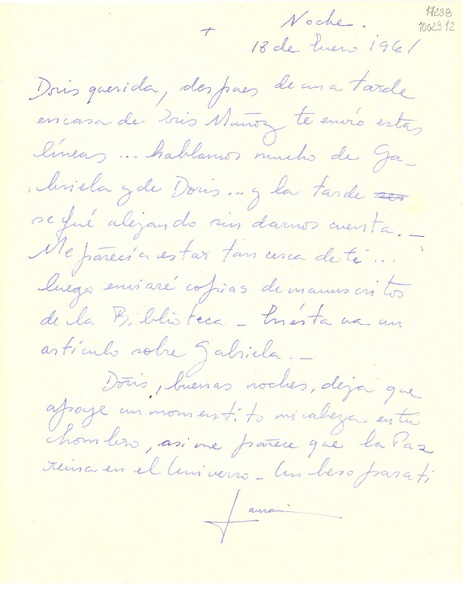 17238
1002972
Noche.
+
18 de Enero 1961
Doris querida, despues de una tarde
en casa de Doris Muñoz te envío estas
líneas... hablamos mucho de Ga-
briela y de Doris... y la tarde
se fué alejando sin darnos cuenta._
Me parecía estar tan cerca de ti...
luego enviaré copias de manuscritos
de la Biblioteca _ En ésta va un
artículo sobre Gabriela._
Doris, buenas noches, deja que
apoye un momentito mi cabeza en tu
hombro, asi me parece que la Paz
reina en el Universo _ Un beso para ti